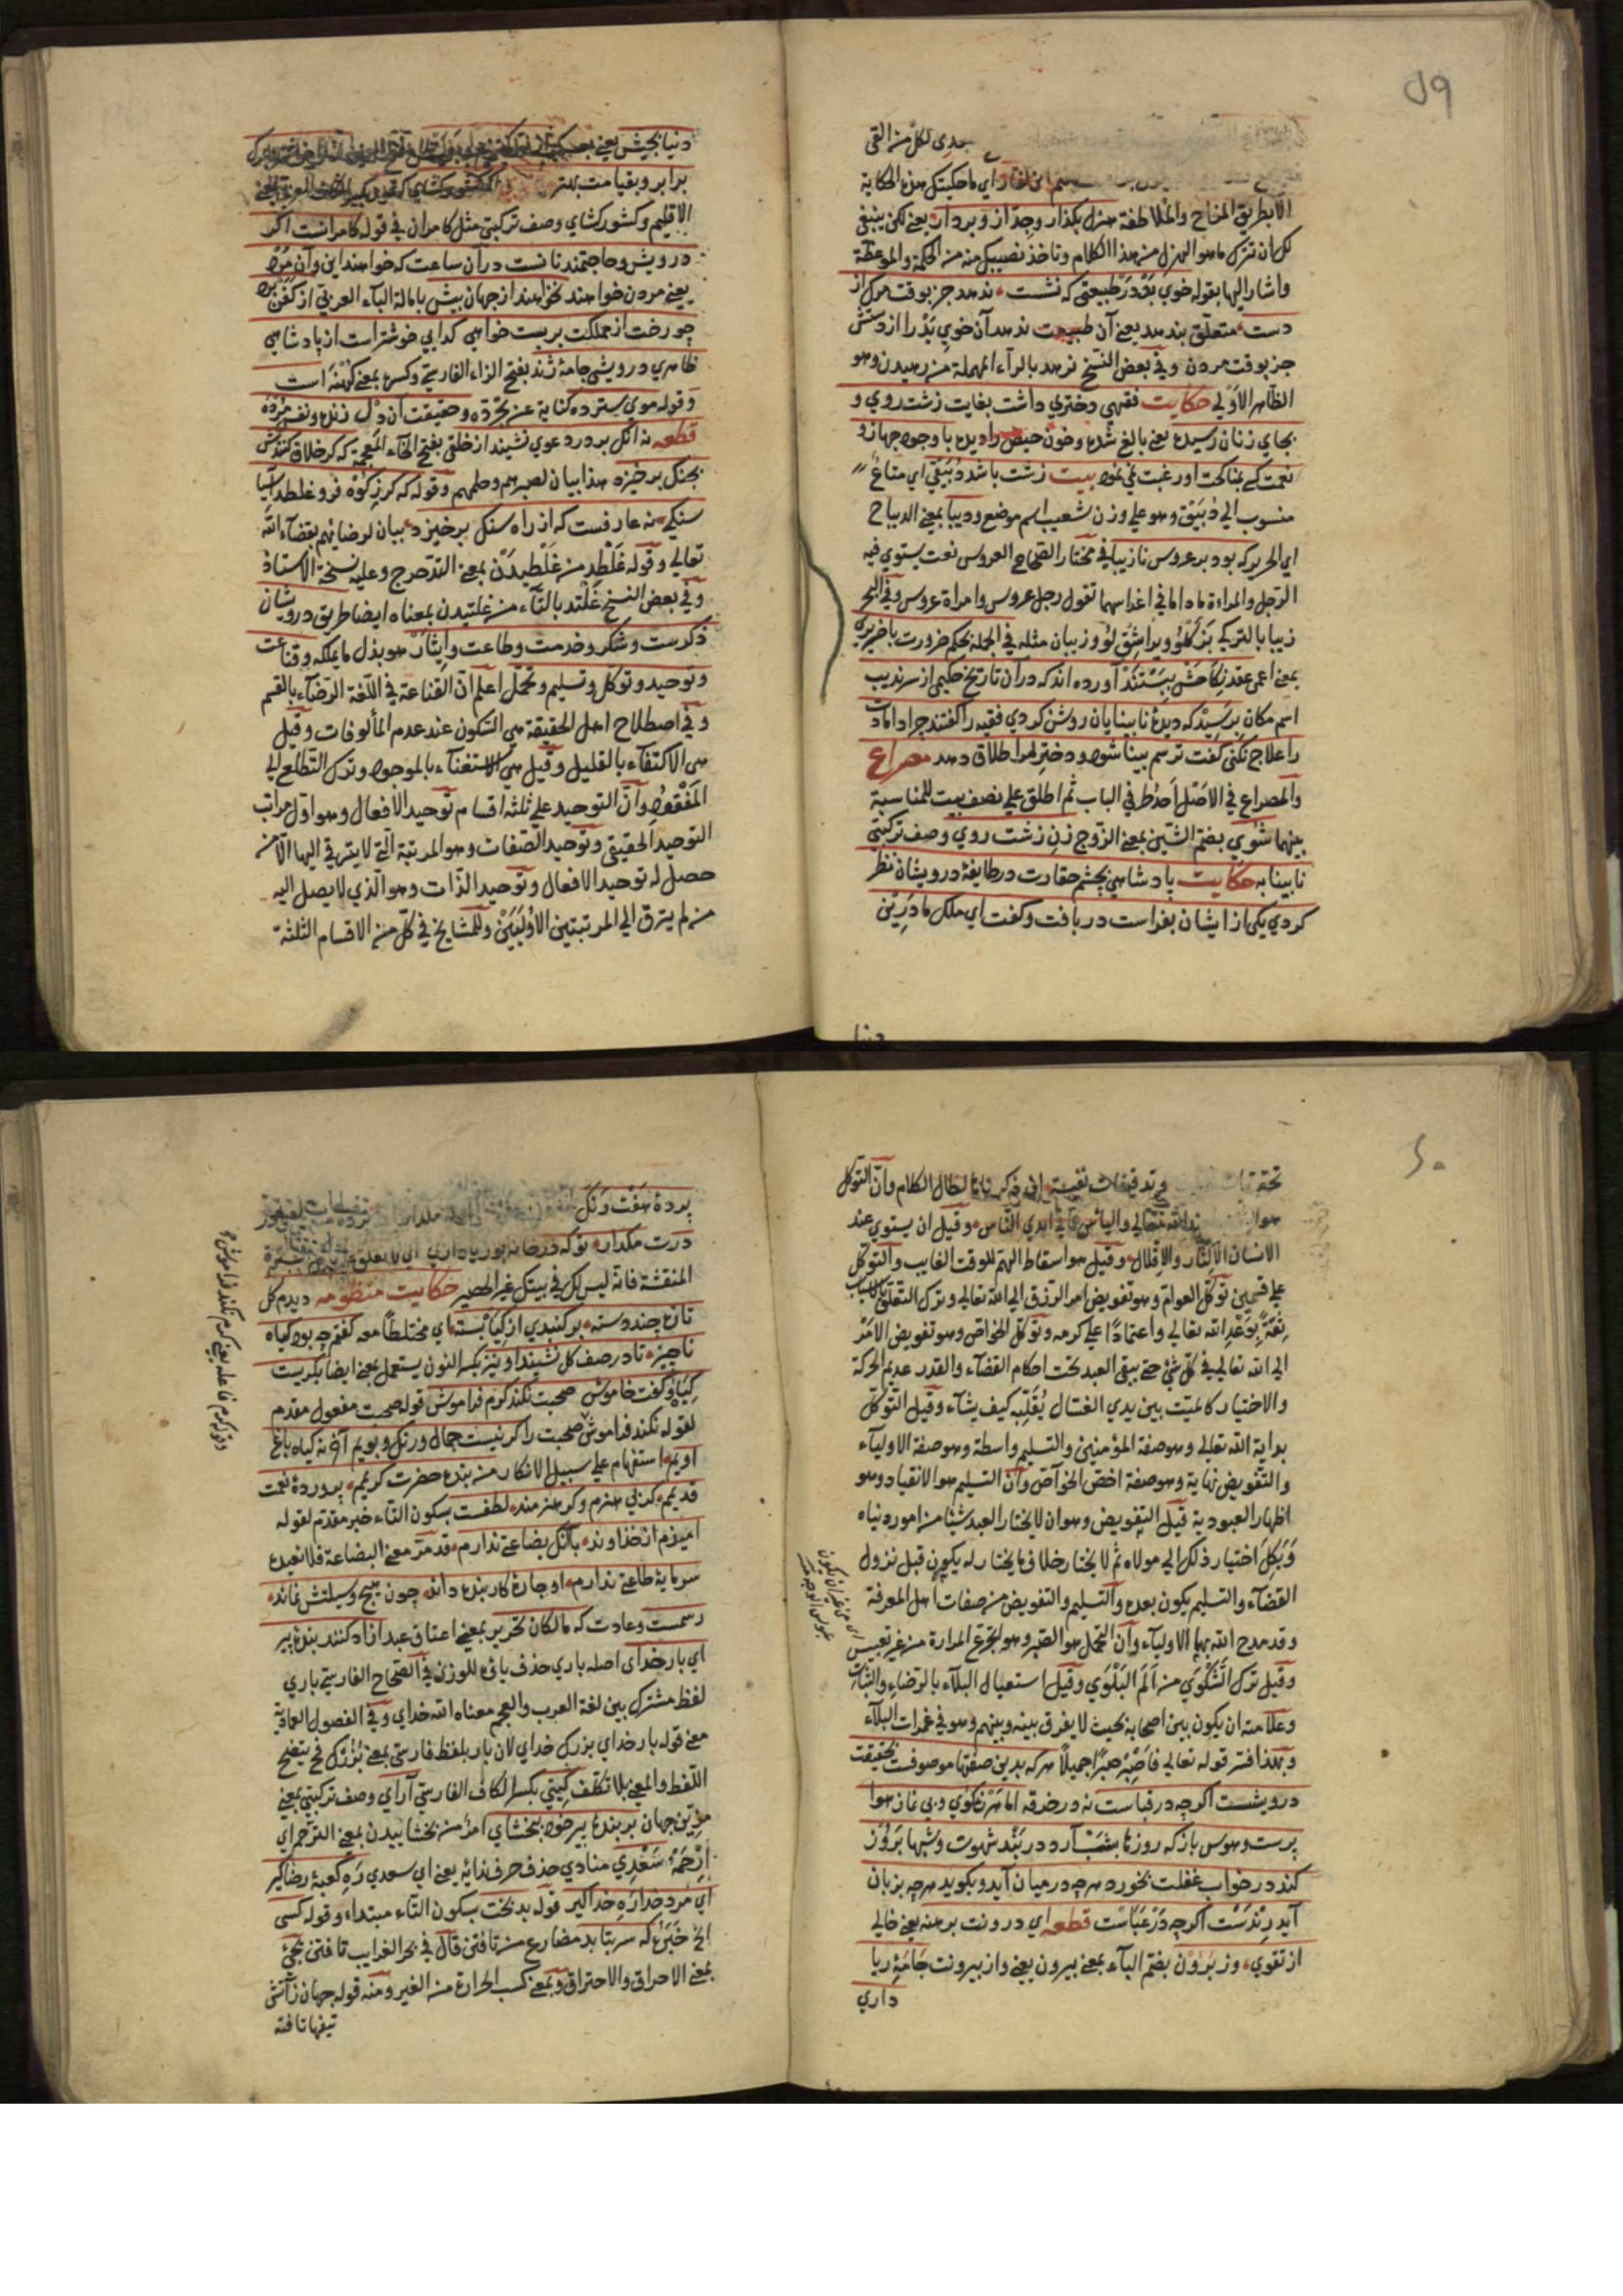 ٥٩
جدي لكل منه القى
اي ما حكيتك هذه الحكاية
الا بطريق المزاح والملاطفة هزل بكذار وجد از و بردار يعني لكن ينبغي
لك ان تترك ما هو الهزل من هذا الكلام وتاخذ نصيبك منه من الحكمة والموعظة
واشار اليها بقوله خوي بد در طبيعتي كه نشست ندهد جز بوقت مرك از
دست متعلق بندهد يعني آن طبيعت ندهد آن خوي بد را از دستش
جز بوقت مردن وفي بعض النسخ نرهد بالراء المهملة من رهيدن وهو
الظاهر الاولى حكايت فقيهي دختري داشت بغايت زشت روي و
بجاي زنان رسيده يعني بالغ شده وخون حيض را ديده با وجود جهاز و
نعمت كسي بمناكحت او رغبت نمي نمود بيت زشت باشد دبيقي اي متاع
منسوب الي دبيق وهو علي وزن شعيب اسم موضع وديبا بمعني الديباج
اي الحرير كه بود بر عروس نازيبا في مختار الصحاح العروس نعت يستوي فيه
الرجل والمراءة ما داما في اعراسهما تقول رجل عروس وامراة عروس وفي البحر
زيبا بالتركي بزكلو ويراشق لو وزيبان مثله في الجمله بحكم ضرورت با ضريري
بمعني اعمى عقد نكاحش ببستند آورده اند كه در ان تاريخ حكيمي از سرنديب
اسم مكان برسيد كه ديده نابينايان روشن كردي فقيه را گفتند چرا دامادت
را علاج نكني گفت ترسم بينا شود و دختر مرا طلاق دهد مصراع
والمصراع في الاصل احد طرفي الباب ثم اطلق علي نصف بيت للمناسبة
بينهما شوي بضم الشين بمعني الزوج زن زشت روي وصف تركيبي
نابينا به حكايت پادشاهي بچشم حقارت در طايفه درويشان نظر
كردي يكي از ايشان بفراست دريافت وكفت اي ملك ما درين
دنيا
دنيا بجيش يعني
برابر و بقيامت بهتر
الاقليم وكشور كشاي وصف تركيبي مثل كامران في قوله كامرانست اكر
درويش وحاجتمند نانست در آن ساعت كه خواهند اين وآن مرد
يعني مردن خواهند نخواهند از جهان بيش با مالة الباء العربي از كفن برد
چو رخت از مملكت بربست خواهي كدايي خوشتر است از پادشاهي
ظاهري درويشي جامه ژند بفتح الزاء الفارسي وكسره بمعني كهنه است
وقوله موي سترده كناية عن تجرده وحقيقت آن دل زنده ونفس مرده
قطعه نه انك بر در دعوي نشيند از خلقي بفتح الخاء المعجمة كه كر خلاف كنندش
بجنك برخيزد هذا بيان لصبرهم وحلمهم وقوله كه كر ز كوه فرو غلطد آسيا
سنكي نه عارفست كه از راه سنك برخيزد بيان لرضائهم بقضاء الله
تعالي وقوله غلطد من غلطيدن بمعني التدحرج وعليه نسخة الاستاذ
وفي بعض النسخ غلتد بالتاء من غلتيدن بمعناه ايضا طريق درويشان
ذكرست وشكر وخدمت وطاعت وايثار هو بذل ما يملكه وقناعت
وتوحيد وتوكل وتسليم وتحمل اعلم ان القناعة في اللغة الرضاء بالقسم
وفي اصطلاح اهل الحقيقة هي السكون عند عدم المألوفات وقيل
هي الاكتفاء بالقليل وقيل هي الاستغناء بالموجود وترك التطلع الي
المفقود وان التوحيد علي ثلثة اقسام توحيد الافعال وهو اول مراتب
التوحيد الحقيقي وتوحيد الصفات وهو المرتبة التي لا يترقي اليها الا من
حصل له توحيد الافعال وتوحيد الذات وهو الذي لا يصل اليه
من لم يترق الي المرتبتين الاوليين وللمشايخ في كل من الاقسام الثلثة
٦٠
تحقيقات وتدقيقات نفيسة لطال الكلام وان التوكل
هو الله تعالي والياس عما في ايدي الناس وقيل ان يستوي عند
الانسان الاكثار والاقلال وقيل هو اسقاط الهم للوقت الغايب والتوكل
علي قسمين توكل العوام وهو تفويض امر الرزق الي الله تعالي وترك التعلق بالاسباب
ثقة بوعد الله تعالي واعتمادا علي كرمه وتوكل الخواص وهو تفويض الامر
الي الله تعالي في كل شئ حتي يبقي العبد تحت احكام القضاء والقدر عديم الحركة
والاختيار كالميت بين يدي الغسال يقلبه كيف يشاء وقيل التوكل
بداية الله تعالي وهو صفة المؤمنين والتسليم واسطة وهو صفة الاولياء
والتفويض نهاية وهو صفة اخص الخواص وان التسليم هو الانقياد وهو
اظهار العبودية قيل التفويض وهو ان لا يختار العبد شيئا من امور دنياه
ويكل اختيار ذلك الي مولاه ثم لا يختار خلاف ما يختار له يكون قبل نزول
القضاء والتسليم يكون بعده والتسليم والتفويض من صفات اهل المعرفة
وقد مدح الله بهما الاولياء وان التحمل هو الصبر وهو تجرع المرارة من غير تعبيس
وقيل ترك الشكوي من الم البلوي وقيل استعمال البلاء بالرضاء والثبات
وعلامته ان يكون بين اصحابه بحيث لا يفرق بينه وبينهم وهو في غمرات البلاء
وبهذا فسر قوله تعالي فاصبر صبرا جميلا هر كه بدين صفتها موصوفست بحقيقت
درويشست اكرچه در قباست نه در خرقه اما هرزه كوي وبي نماز هوا
پرست وهوس باز كه روزها بشب آرد در بند شهوت وشبها بروز
كند در خواب غفلت بخورد هرچه در ميان آيد وبكويد هرچه بزبان
آيد رندست اكرچه در عباست قطعه اي درونت برهنه يعني خالي
از تقوي وز برون بضم الباء بمعني بيرون يعني واز بيرونت جامه ريا
داري
اي من غير ان يكون
عبوس الوجه
پرده هفت رنك
درت مكذار تو كه در خانه بوريا داري
المنقشة فانه ليس لك في بيتك غير الحصير حكايت منظومه ديدم كل
تازه چند دسته بر كنبدي از كياه بسته اي مختلطا معه كفتم چه بود كياه
ناچيز تا در صف كل نشيند او نيز بكسر النون يستعمل بمعني ايضا بكريست
كياه وكفت خاموش صحبت نكند كرم فراموش قوله صحبت مفعول مقدم
لقوله نكند فراموش صحبت را كر نيست جمال ورنك وبويم آخر نه كياه باغ
اويم استفهام علي سبيل الانكار من بنده حضرت كريمم پرورده نعمت
قديمم كر بي هنرم وكر هنرمند لطفست بسكون التاء خبر مقدم لقوله
اميدم از خداوند با آنك بضاعتي ندارم قد مر معني البضاعة فلا نعيده
سرمايه طاعتي ندارم او چاره كار بنده داند چون هيچ وسيلتش نماند
رسمست وعادت كه مالكان تحرير بمعني اعتاق عبد آزاد كنند بنده پير
اي بار خداي اصله باري حذف ياؤه للوزن في الصحاح الفارسي باري
لفظ مشترك بين لغة العرب والعجم معناه الله خداي وفي الفصول العمادية
معني قوله بار خداي بزرك خداي لان بار بلفظ فارسي بمعني بزرك فح يتضح
اللفظ والمعني بلا تكلف كيتي بكسر الكاف الفارسي آراي وصف تركيبي بمعني
مزين جهان بر بنده پير خود ببخشاي امر من بخشاييدن بمعني الترحم اي
ارحمه سعدي منادي حذف حرف ندائه يعني اي سعدي ره كعبه رضا كير
اي مرد خدا ره خدا كير قوله بدبخت بسكون التاء مبتداء وقوله كسي
الخ خبره كه سر بتابد مضارع من تافتن قال في بحر الغرايب تافتن يجئ
بمعني الاحراق والاحتراق وبمعني كسب الحرارة من الغير ومنه قوله جهان ز آتش
تيغها تافته